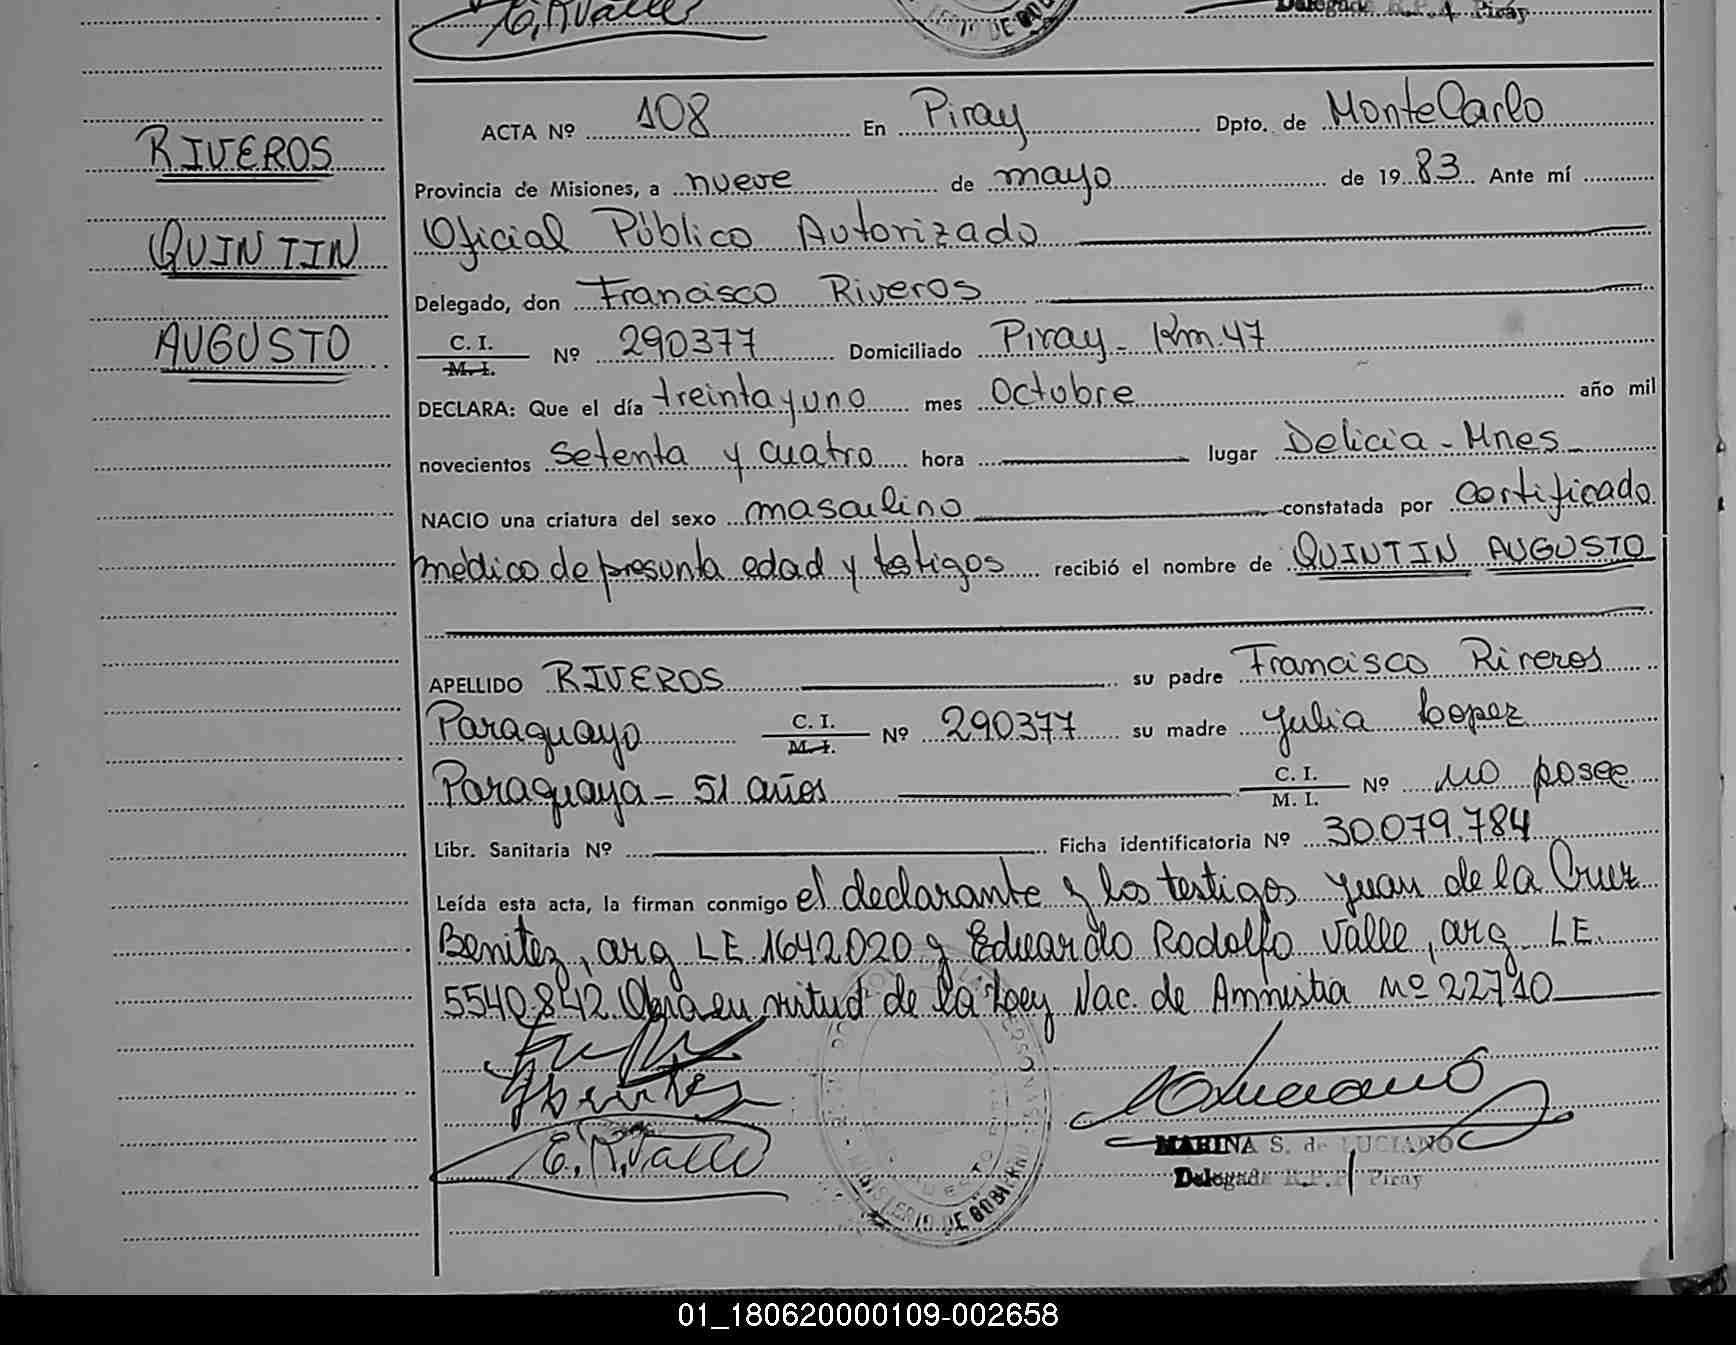 E. R. Valle
Delegada R.P. Piray
ACTA Nº 108 En Piray Dpto. de MonteCarlo
RIVEROS
Provincia de Misiones, a nueve de mayo de 1983 Ante mí
QUINTIN
Oficial Público Autorizado
Delegado, don Francisco Riveros
AUGUSTO
C. I. M. I. Nº 290377 Domiciliado Piray - Km. 47
DECLARA: Que el día treinta y uno mes Octubre año mil
novecientos setenta y cuatro hora lugar Delicia - Mnes
NACIO una criatura del sexo masculino constatada por certificado
médico de presunta edad y testigos recibió el nombre de QUINTIN AUGUSTO
APELLIDO RIVEROS su padre Francisco Riveros
Paraguayo C. I. M. I. Nº 290377 su madre Julia Lopez
Paraguaya - 51 años C. I. M. I. Nº no posee
Libr. Sanitaria Nº Ficha identificatoria Nº 30.079.784
Leída esta acta, la firman conmigo el declarante y los testigos Juan de la Cruz
Benitez, arg LE 1642020 y Eduardo Rodolfo Valle, arg LE
5540.842. Obra en virtud de la Ley Nac. de Amnistia Nº 22710
E. R. Valle
MARINA S. de LUCIANO
Delegada R.P. Piray
MINISTERIO DE GOBIERNO
01_180620000109-002658